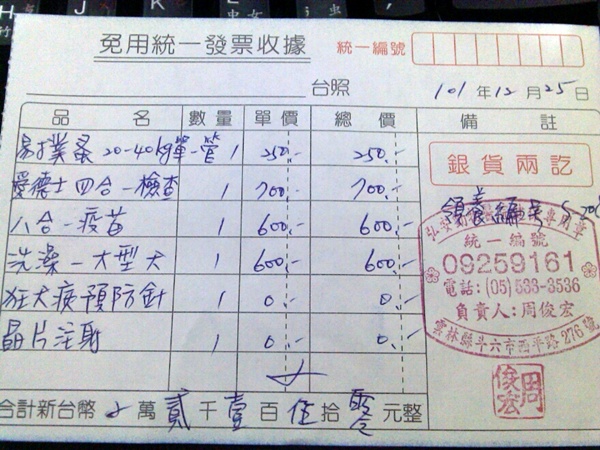 免用統一發票收據
統一編號
台照
101年12月25日
品名 數量 單價 總價 備註
易撲蚤 20-40kg單一管 1 250.- 250.-
愛德士四合一檢查 1 700.- 700.-
八合一疫苗 1 600.- 600.-
洗澡-大型犬 1 600.- 600.-
狂犬病預防針 1 0.- 0.-
晶片注射 1 0.- 0.-
合計新台幣 萬貳千壹百伍拾零元整
銀貨兩訖
領養編號
專用章
統一編號
09259161
電話:(05)533-3536
負責人:周俊宏
雲林縣斗六市西平路276號
周俊宏